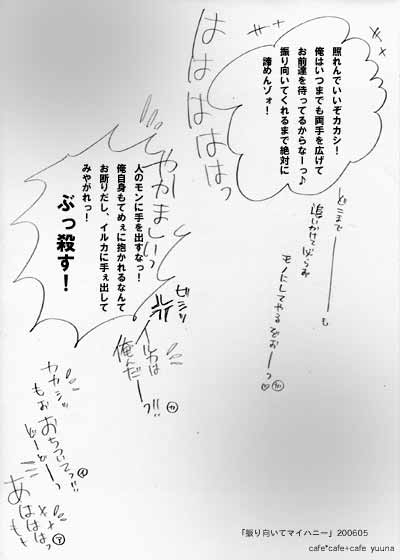 照れんでいいぞカカシ！
俺はいつまでも両手を広げて
お前達を待ってるからなーっ♪
振り向いてくれるまで絶対に
諦めんゾォ！
はははははっ
どこまでーーーも
追いかけて
モノにしてやるぞおーっ♡
やかましいっ
人のモンに手を出すなっ！
俺自身もてめぇに抱かれるなんて
お断りだし、イルカに手ぇ出して
みやがれっ！
ぶっ殺す！
イルカは
俺んだーっ!!
カカシッ
もぉおちついてっ!!
どーどーっ
あはははっ
「振り向いてマイハニー」200605
cafe*cafe+cafe yuuna